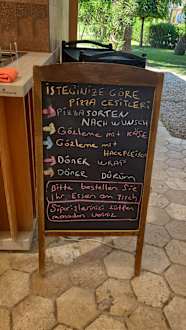 İSTEĞİNİZE GÖRE
PİZZA ÇEŞİTLERİ
PİZZASORTEN
NACH WUNSCH
Gözleme mit KÄSE
Gözleme mit
HACKFLEISCH
DÖNER WRAP
DÖNER DÜRÜM
Bitte bestellen Sie
Ihr Essen am Tisch
Siparişlerinizi lütfen
masadan veriniz